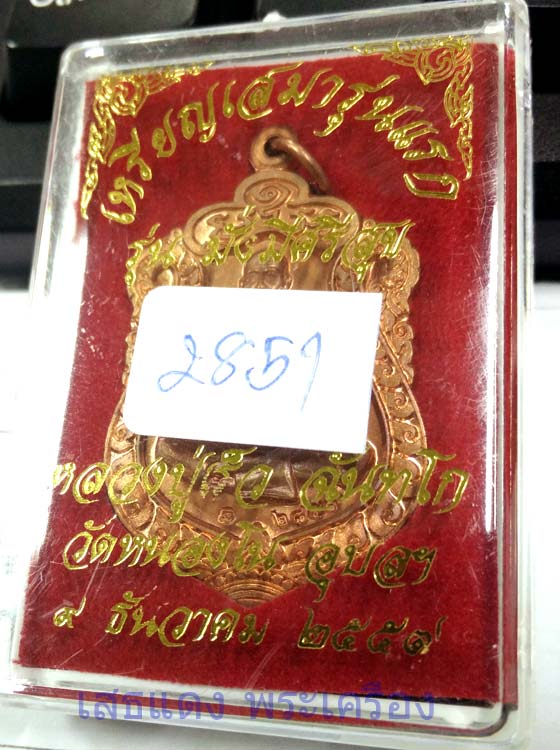 เหรียญเสมารุ่นแรก
รุ่น มั่งมีศรีสุข
2851
หลวงปู่เร็ว ฉันทโก
วัดหนองโน อุบลฯ
๙ ธันวาคม ๒๕๕๙
เสธแดง พระเครื่อง